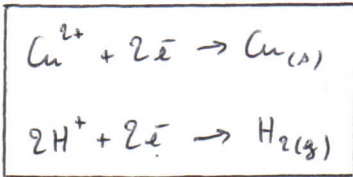 Cu²⁺ + 2ē → Cu(s)
2H⁺ + 2ē → H₂(g)